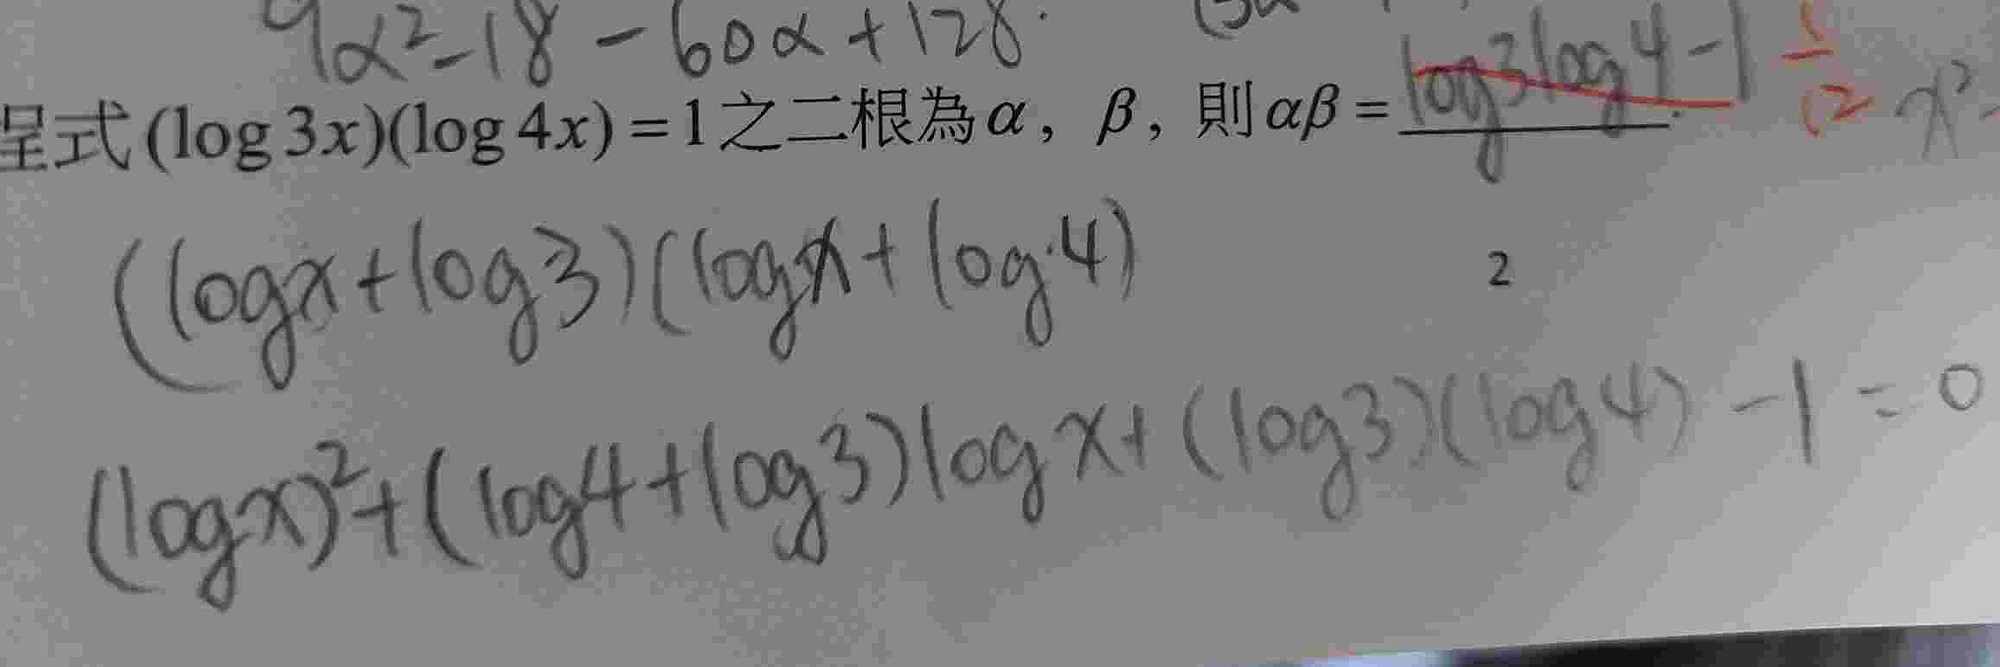 9α²-18-60α+128
程式(log 3x)(log 4x)=1之二根為α，β，則αβ= log3log4-1 1/12 x²-
(logx+log3)(logx+log4)
2
(logx)²+(log4+log3)logx+(log3)(log4)-1=0